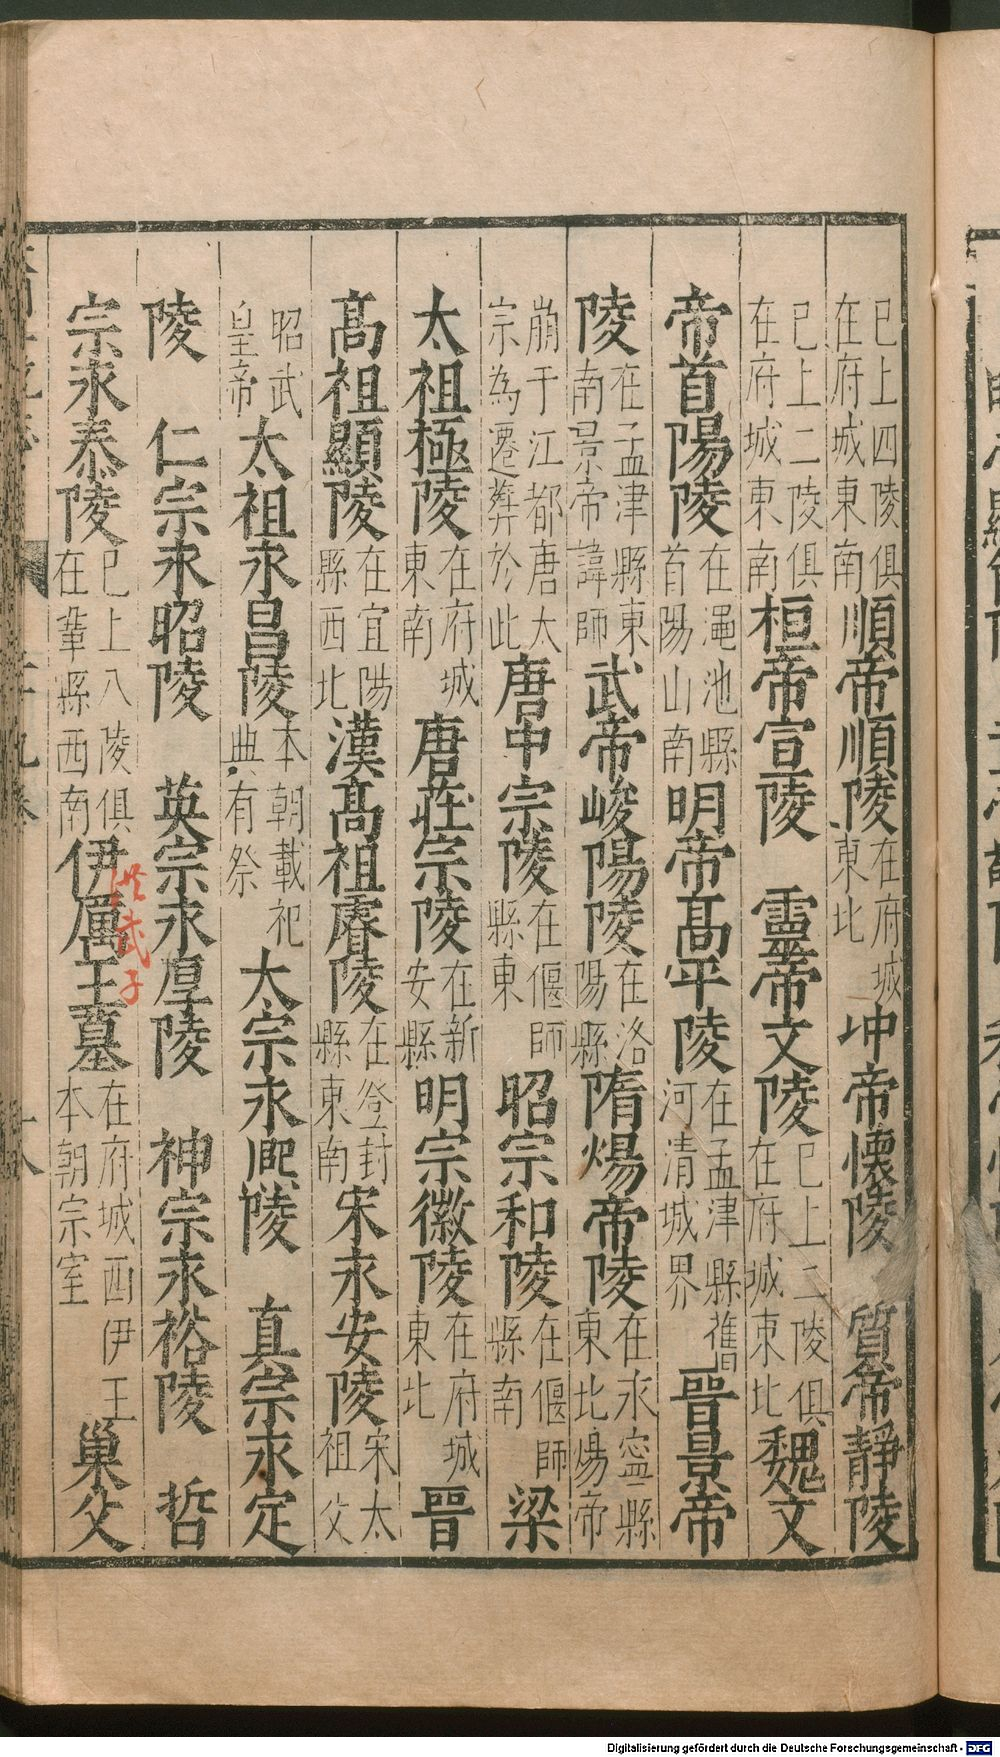 已上四陵俱在府城東南順帝順陵在府城東北冲帝懷陵　質帝靜陵
已上二陵俱在府城東南桓帝宣陵　靈帝文陵已上二陵俱在府城東北魏文
帝首陽陵在黽池縣首陽山南明帝高平陵在孟津縣舊河清城界晉景帝
陵在孟津縣東南景帝諱師武帝峻陽陵在洛陽縣隋煬帝陵在永寧縣東北煬帝
崩于江都唐太宗為遷葬於此唐中宗陵在偃師縣東昭宗和陵在偃師縣南梁
太祖極陵在府城東南唐莊宗陵在新安縣明宗徽陵在府城東北晉
高祖顯陵在宜陽縣西北漢高祖睿陵在登封縣東南宋永安陵宋太祖父
昭武皇帝太祖永昌陵本朝載祀典有祭太宗永熙陵　真宗永定
陵　仁宗永昭陵　英宗永厚陵　神宗永裕陵　哲
宗永泰陵已上八陵俱在鞏縣西南伊厲王墓在府城西伊王本朝宗室巢父
洪武子
Digitalisierung gefördert durch die Deutsche Forschungsgemeinschaft - DFG